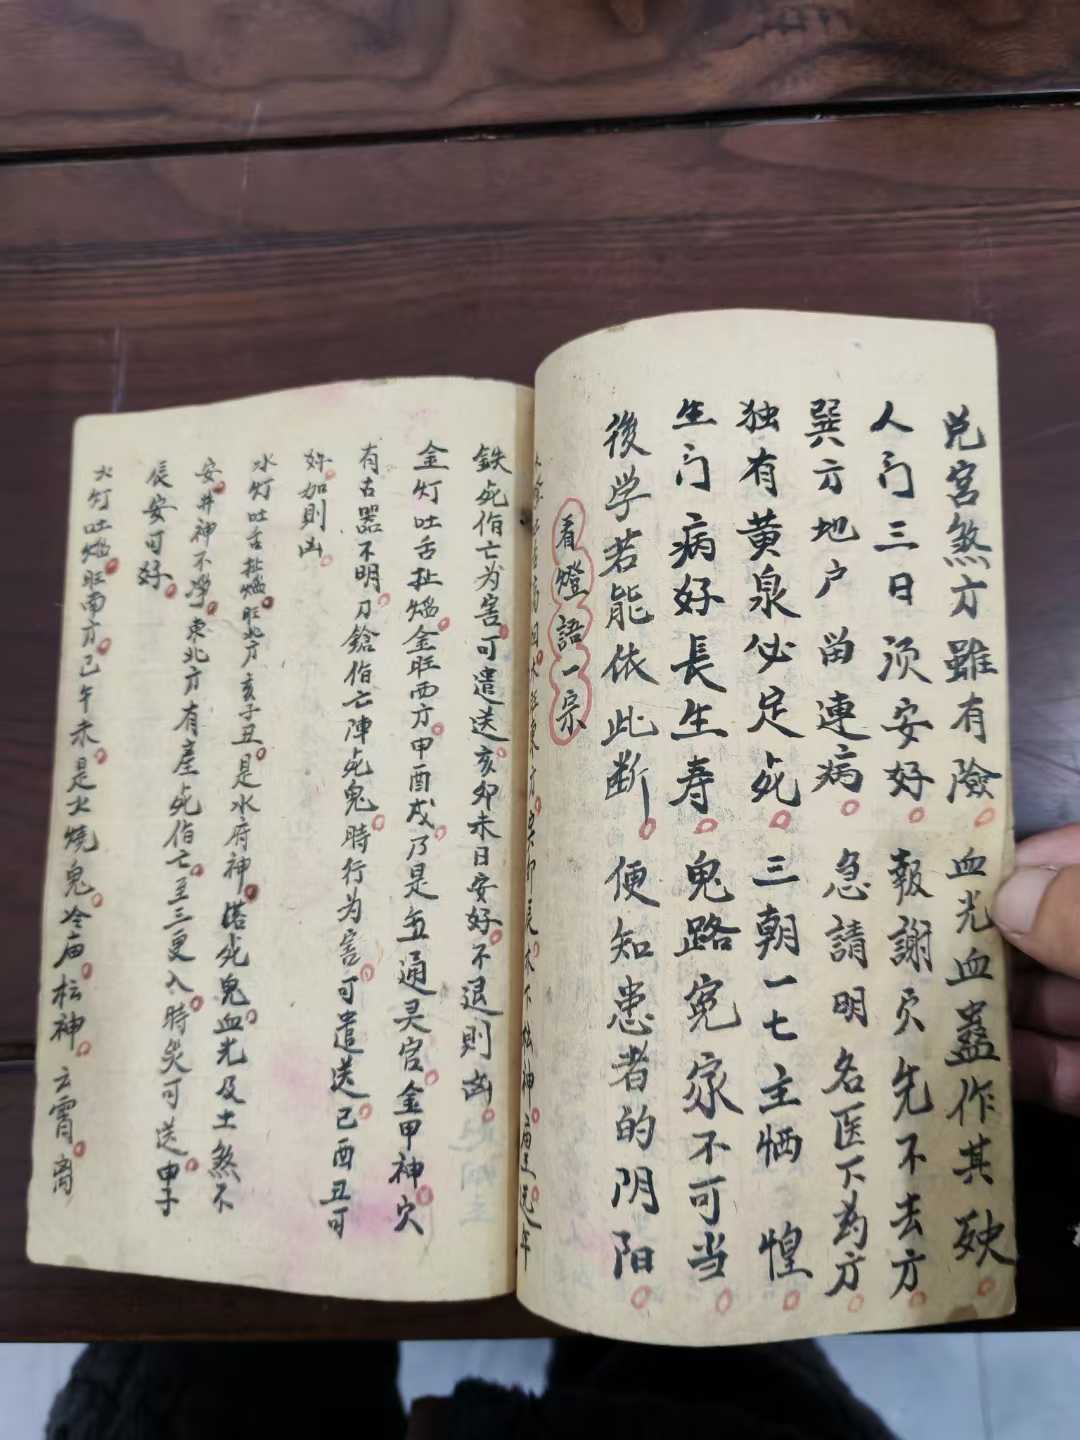 兑宫煞方雖有險 血光血蠱作其殃
人门三日须安好 報謝灾先不去方
巽方地户畄連病 急請明名医下药方
独有黄泉必定死 三朝一七主恓惶
生门病好長生寿 鬼路寃家不可当
後学若能依此断 便知患者的阴阳
看燈語一宗
鉄死伯亡为害可遣送亥卯未日安好不退則凶
金灯吐舌扯焰金旺西方申酉戍乃是五通灵官金甲神穴
有古器不明刀鎗伯亡陣死鬼時行为害可遣送已酉丑可
好加則凶
水灯吐舌扯焰旺北方亥子丑是水府神塔死鬼血光及土煞不
安井神不寧東北方有産死伯亡至三更入時哭可送申子
辰安可好
火灯吐焰旺南方已午未是火燒鬼冷庙坛神 云霄